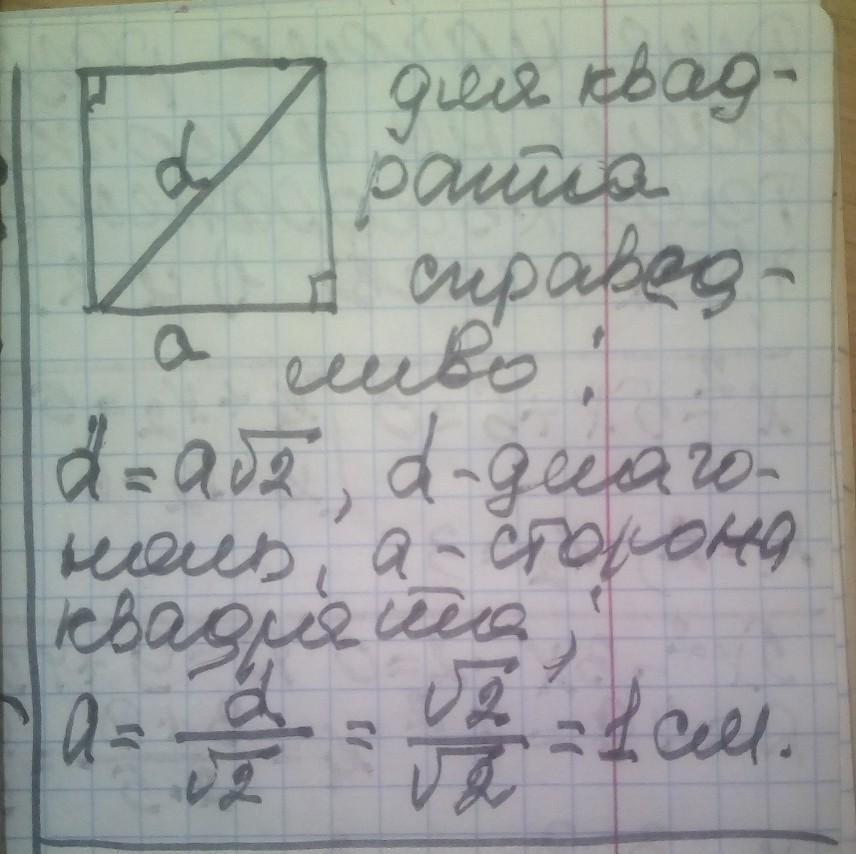 для квад-
d
рата
справед-
a
ливо:
d = a√2, d - диаго-
наль, a - сторона
квадрата;
a = d/√2 = √2/√2 = 1 см.